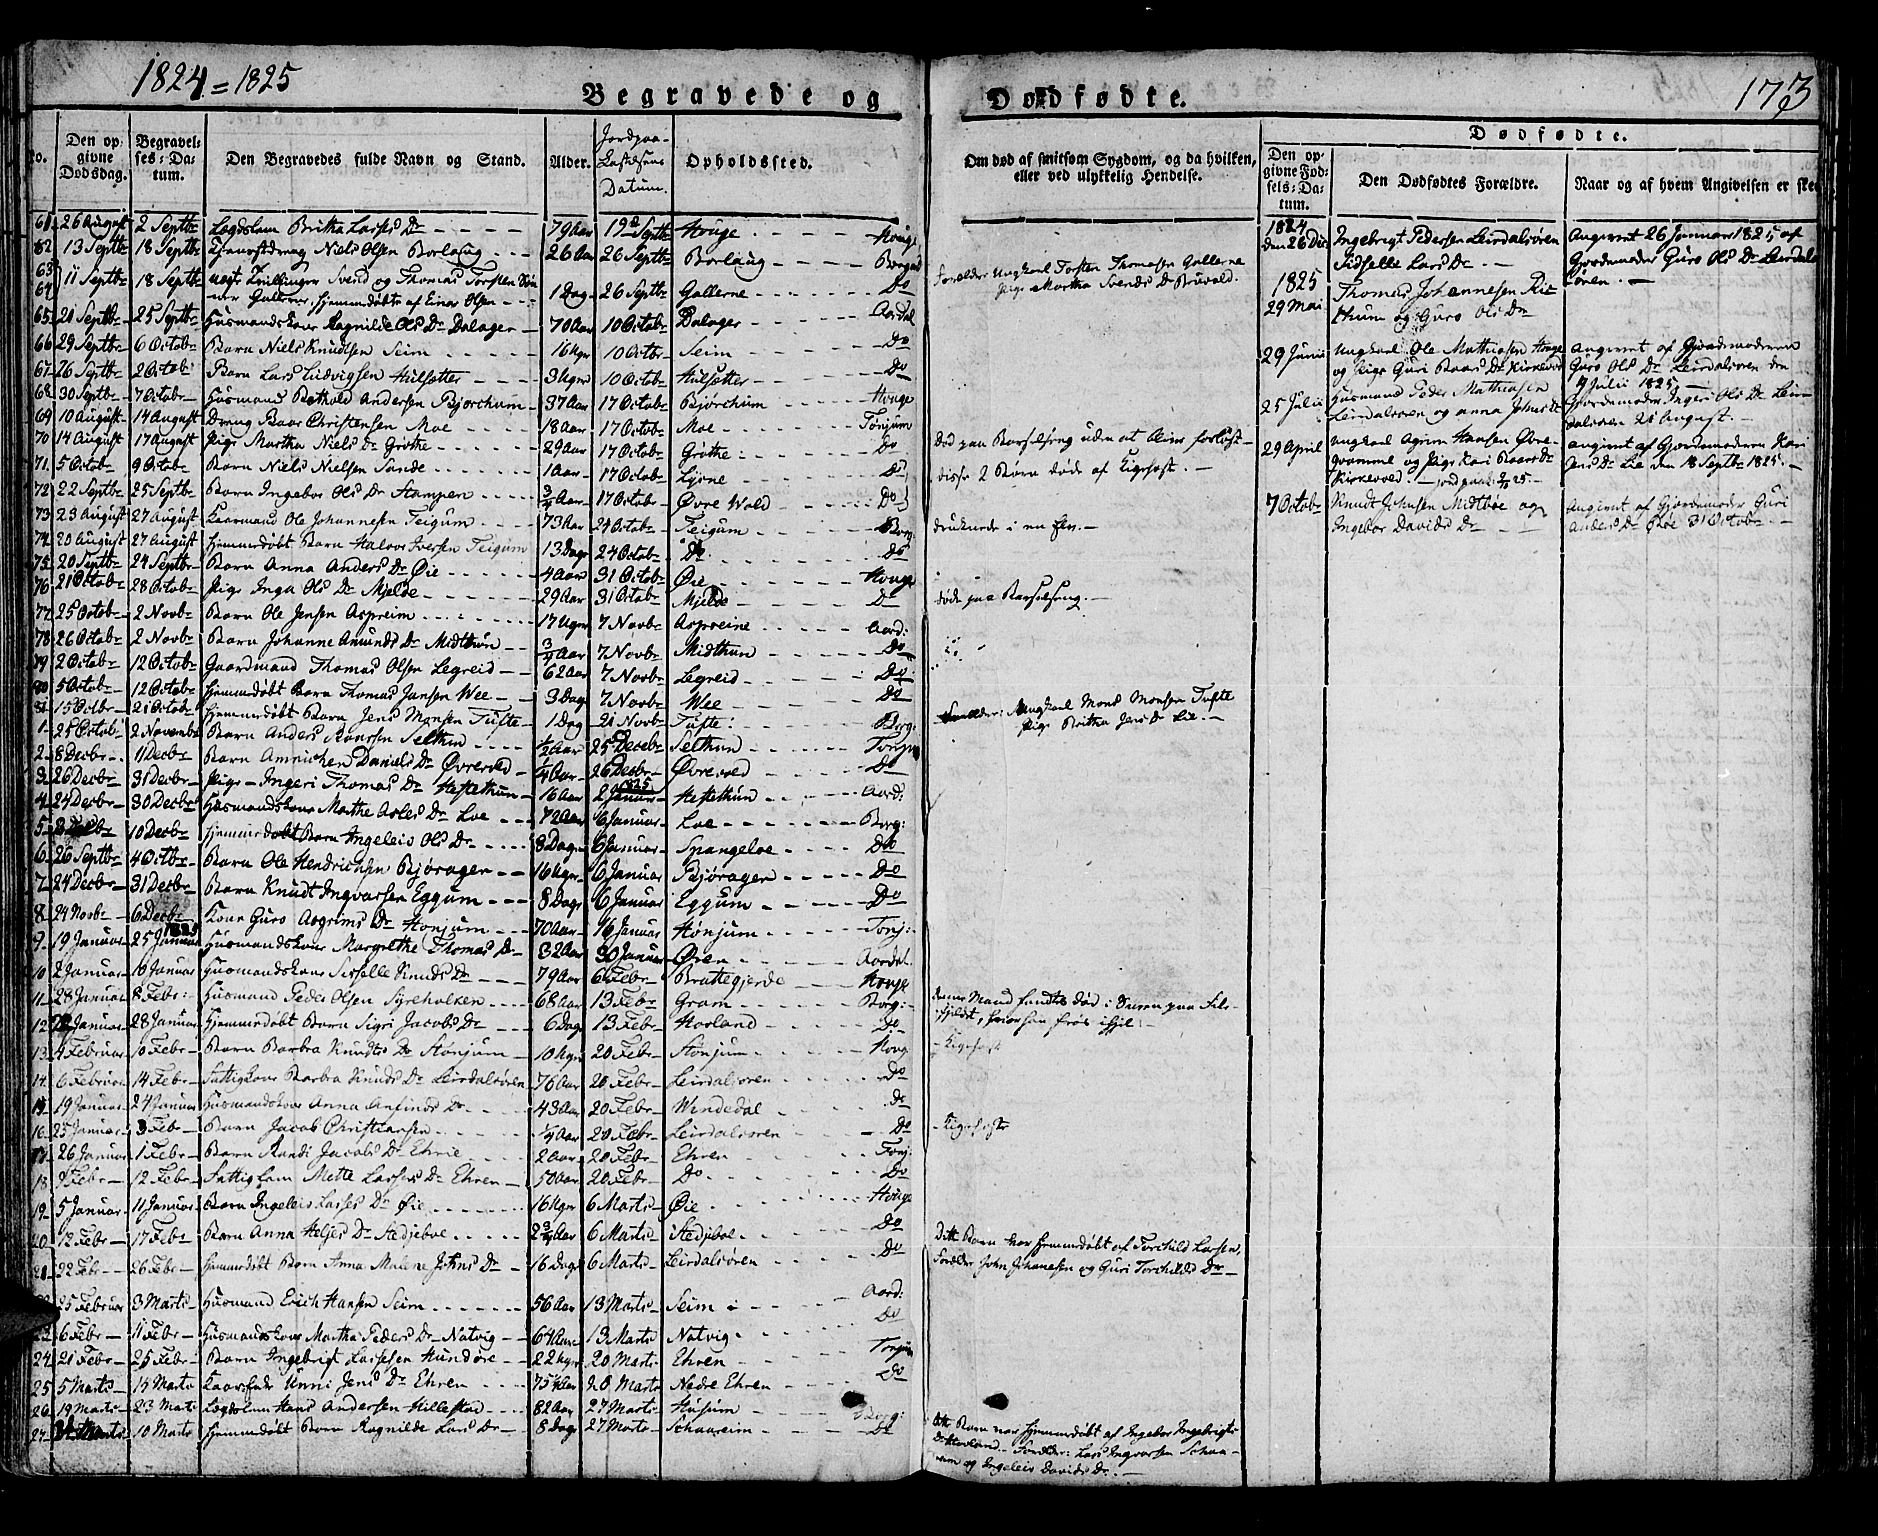 1824 = 1825
Begravede og Dødfødte.
173
No. Den opgivne Dødsdag. Begravelses-Datum. Den Begravedes fulde Navn og Stand. Alder. Jordpaakastelsens Datum. Opholdssted.
Om død af smitsom Sygdom, og da hvilken, eller ved ulykkelig Hendelse.
Dødfødte.
Den opgivne Fødsels-Datum. Den Dødfødtes Forældre. Naar og af hvem Angivelsen er skeet
61 26 August 2 Septbr Lægdslem Britha Larses Dr 79 Aar 19 Septbr Houge Houge
62 13 Septbr 18 Septbr Niels Olsen Borlaug 26 Aar 26 Septbr Borlaug Borgund
63 64 11 Septbr 18 Septbr Tvillinger Svend og Thomas Torsten Sønner Gallerne, hjemmedøbte af Einar Olsen 1 Dag 26 Septbr Gallerne Do
65 21 Septbr 25 Septbr Husmandskone Ragnilde Ols Dr Dalager 70 Aar 10 Octob Dalager Aardal
66 29 Septbr 6 Octobr Barn Niels Knudtsen Seim 16 Uger 10 Octbr Seim Do
67 26 Septbr 2 Octob Barn Lars Ludvigsen Hulsætter 3 Uger 10 Octob Hulsætter Do
68 30 Septbr 7 Octob Husmand Bothold Andersen Bjørchum 37 Aar 17 Octob Bjørchum Houge
69 10 August 14 August Dreng Baar Christensen Moe 18 Aar 17 Octob Moe Tonjum
70 14 August 17 August Pige Martha Niels Dr Grøthe 29 Aar 17 Octob Grøthe Do
71 5 Octob 9 Octob Barn Niels Nielsen Sunde 1 Aar 17 Octob Ljøsne Do
72 22 Septbr 25 Septbr Barn Ingebor Ols Dr Stampen 3/4 Aar 17 Octob Øvre Wold Do
73 23 August 27 August Kaarmand Ole Johannesen Teigum 73 Aar 24 Octob Teigum Borg
74 20 August 27 August Hjemmedøbt Barn Halvor Iversen Teigum 13 Dage 24 Octob Do Do
75 20 Septbr 24 Septbr Barn Anna Anders Dr Øie 4 Aar 31 Octob Øie Houge
76 21 Octob 28 Octob Pige Inga Ols Dr Mjelde 29 Aar 31 Octob Mjelde Do
77 25 Octob 2 Novb Barn Ole Jensen Aspreim 17 Uger 7 Novbr Aspreine Aard:
78 26 Octob 2 Novbr Barn Johanne Amunds Dr Midthun 3/4 Aar 7 Novbr Midthun Do
79 2 Octob 12 Octob Gaardmand Thomas Olsen Legreid 62 Aar 7 Novbr Legreid Do
80 5 Octob 12 Octob Hjemmedøbt Barn Thomas Jansen Wee 3 Dage 7 Novbr Wee Do
81 15 Octbr 21 Octob Hjemmedøbt Barn Jens Monsen Tufte 1 Dag 21 Novbr Tufte Borg:
1 25 Octob 2 Novembr Barn Anders Baarsen Selthun 1/2 Aar 25 Decebr Selthun Tonjum
2 8 Decbr 11 Decbr Barn Annichen Daniels Dr Øvrevold 1/4 Aar 26 Decbr Øvrevold Do
3 26 Decbr 31 Decbr Pige Ingeri Thomas Dr Hestethun 16 Aar 2 Januar 1825 Hestethun Aard:
4 24 Decbr 30 Decbr Husmandskone Marthe Asles Dr Loe 72 Aar 6 Januar Loe Borg:
5 10 Decbr Hjemmedøbt Barn Ingeleis Ols Dr 8 Dage 6 Januar Spangeloe Do
6 26 Septbr 4 Octbr Barn Ole Hendrichsen Bjørager 16 Uger 6 Januar Bjørager Do
7 24 Decbr 31 Decbr Barn Knudt Ingvarsen Eggum 8 Dage 6 Januar Eggum Do
8 24 Novbr 6 Decbr Kone Guro Asgrims Dr Hønjum 70 Aar 16 Januar Hønjum Tonj:
9 19 Januar 25 Januar 1825 Husmandskone Margrethe Thomas Dr 32 Aar 30 Januar Øien Aardal
10 2 Januar 10 Januar Husmandskone Sisselle Knuds Dr 79 Aar 6 Febr Brattegjerde Houge
11 28 Januar 8 Febr: Husmand Peder Olsen Syreholken 68 Aar 13 Febr Gram Borg:
12 Januar 28 Januar Hjemmedøbt Barn Sigri Jacobs Dr 6 Dage 13 Febr Horland Do
13 4 Februar 10 Febr Barn Barbra Knudts Dr Stønjum 10 Uger 20 Febr Stønjum Houg
14 6 Februar 14 Febr Fattigkone Barbra Knuds Dr Leirdalsøren 76 Aar 20 Febr Leirdalsøren Do
15 19 Januar 24 Januar Husmandskone Anna Anfinds Dr 43 Aar 20 Febr Windedal Do
16 25 Januar 3 Feb Barn Jacob Christiansen 1/4 Aar 20 Febr Leirdalsøren Do
17 26 Januar 1 Febr Barn Randi Jacobs Dr Ehrie 2 Aar 20 Febr Ehren Tonj:
18 9 Febr 12 Febr Fattiglem Mette Larses Dr Ehren 50 Aar 20 Febr Do Do
19 5 Januar 11 Januar Barn Ingeleis Larses Dr Øie 16 Uger 6 Marts Øie Houge
20 12 Febr 17 Febr Barn Anna Helges Dr Stedjeboe 2 3/4 Aar 6 Marts Stedjeboe Do
21 22 Feb 26 Febr Hjemmedøbt Barn Anna Malene Johns Dr 16 Dage 6 Marts Leirdalsøren Do
25 Februar 3 Marts Husmand Erich Hansen Seim 56 Aar 13 Marts Seim Aard:
23 6 Febr 11 Febr Husmandskone Martha Peders Dr Natvig 64 Aar 13 Marts Natvig Do
24 21 Febr 25 Febr Barn Ingebrigt Larsesen Hundøre 22 Uger 20 Marts Ehren Tonjum
25 5 Marts 15 Marts Unni Jens Dr Ehren 75 1/4 Aar 20 Marts Nedre Ehren Do
26 19 Marts 23 Marts Lægdslem Hans Andersen Hillestad 82 Aar 27 Marts Husum Borg:
27 Marts 10 Marts Hjemmedøbt Barn Ragnilde Lars Dr 8 Dage 27 Marts Schaareim Do
Forælder Ungkarl Torsten Thomasen Gallerne
Pige Martha Svends Dr Bruvold.
Død paa Barselseng uden at blive forløst
disse 2 Børn døde af Kighoste.
druknede i en Elv.
døde paa Barselseng.
Forælder: Ungkarl Mons Monsen Tufte
Pige Britha Jens Dr Lie.
denne Mand fandtes død i Sneen paa Filefjeldet, hvor han frøs ihjel.
Kighoste
Kighoste
Dette Barn var hjemmedøbt af Torchild Larsen,
Forælder John Johanesen og Guri Torchilds Dr
dette Barn var hjemmedøbt af Ingebor Ingebrigts
Dr Hovland. Forælder: Lars Ingvarsen Schaareim og Ingeleis Davids Dr
1824
den 26 Dec Ingebrigt Pedersen Leirdalsøren
Sidselle Lars Dr
Angivet 26 Januar 1825 af
Gjordemoder Guro Ols Dr Leirdalsøren.
1825
29 Mai Thomas Johannesen Rithum og Guro Ols Dr
29 Junii Ungkarl Ole Mathiasen Houge
og Pige Guri Baars Dr Kirkevold
Angivet af Gjordemoderen
Guro Ols Dr Leirdalsøren den
17 Julii 1825
25 Julii Husmand Peder Mathiasen
Leirdalsøren og Anna Johns Dr
Gjordemoder Ingeri Ols Dr Leirdalsøren 21 August.
29 April Ungkarl Agrim Hansen Øvregvamme og Pige Kari Baars Dr
Kirkevold.
angivet af Gjordemoderen Kari
Jens Dr Lie den 18 Septbr 1825.
7 Octob Knudt Johnsen Midtbøe og
Ingebor Davids Dr
Angivet af Gjordemoder Guri
Anders Dr Bøe 31 Octobr